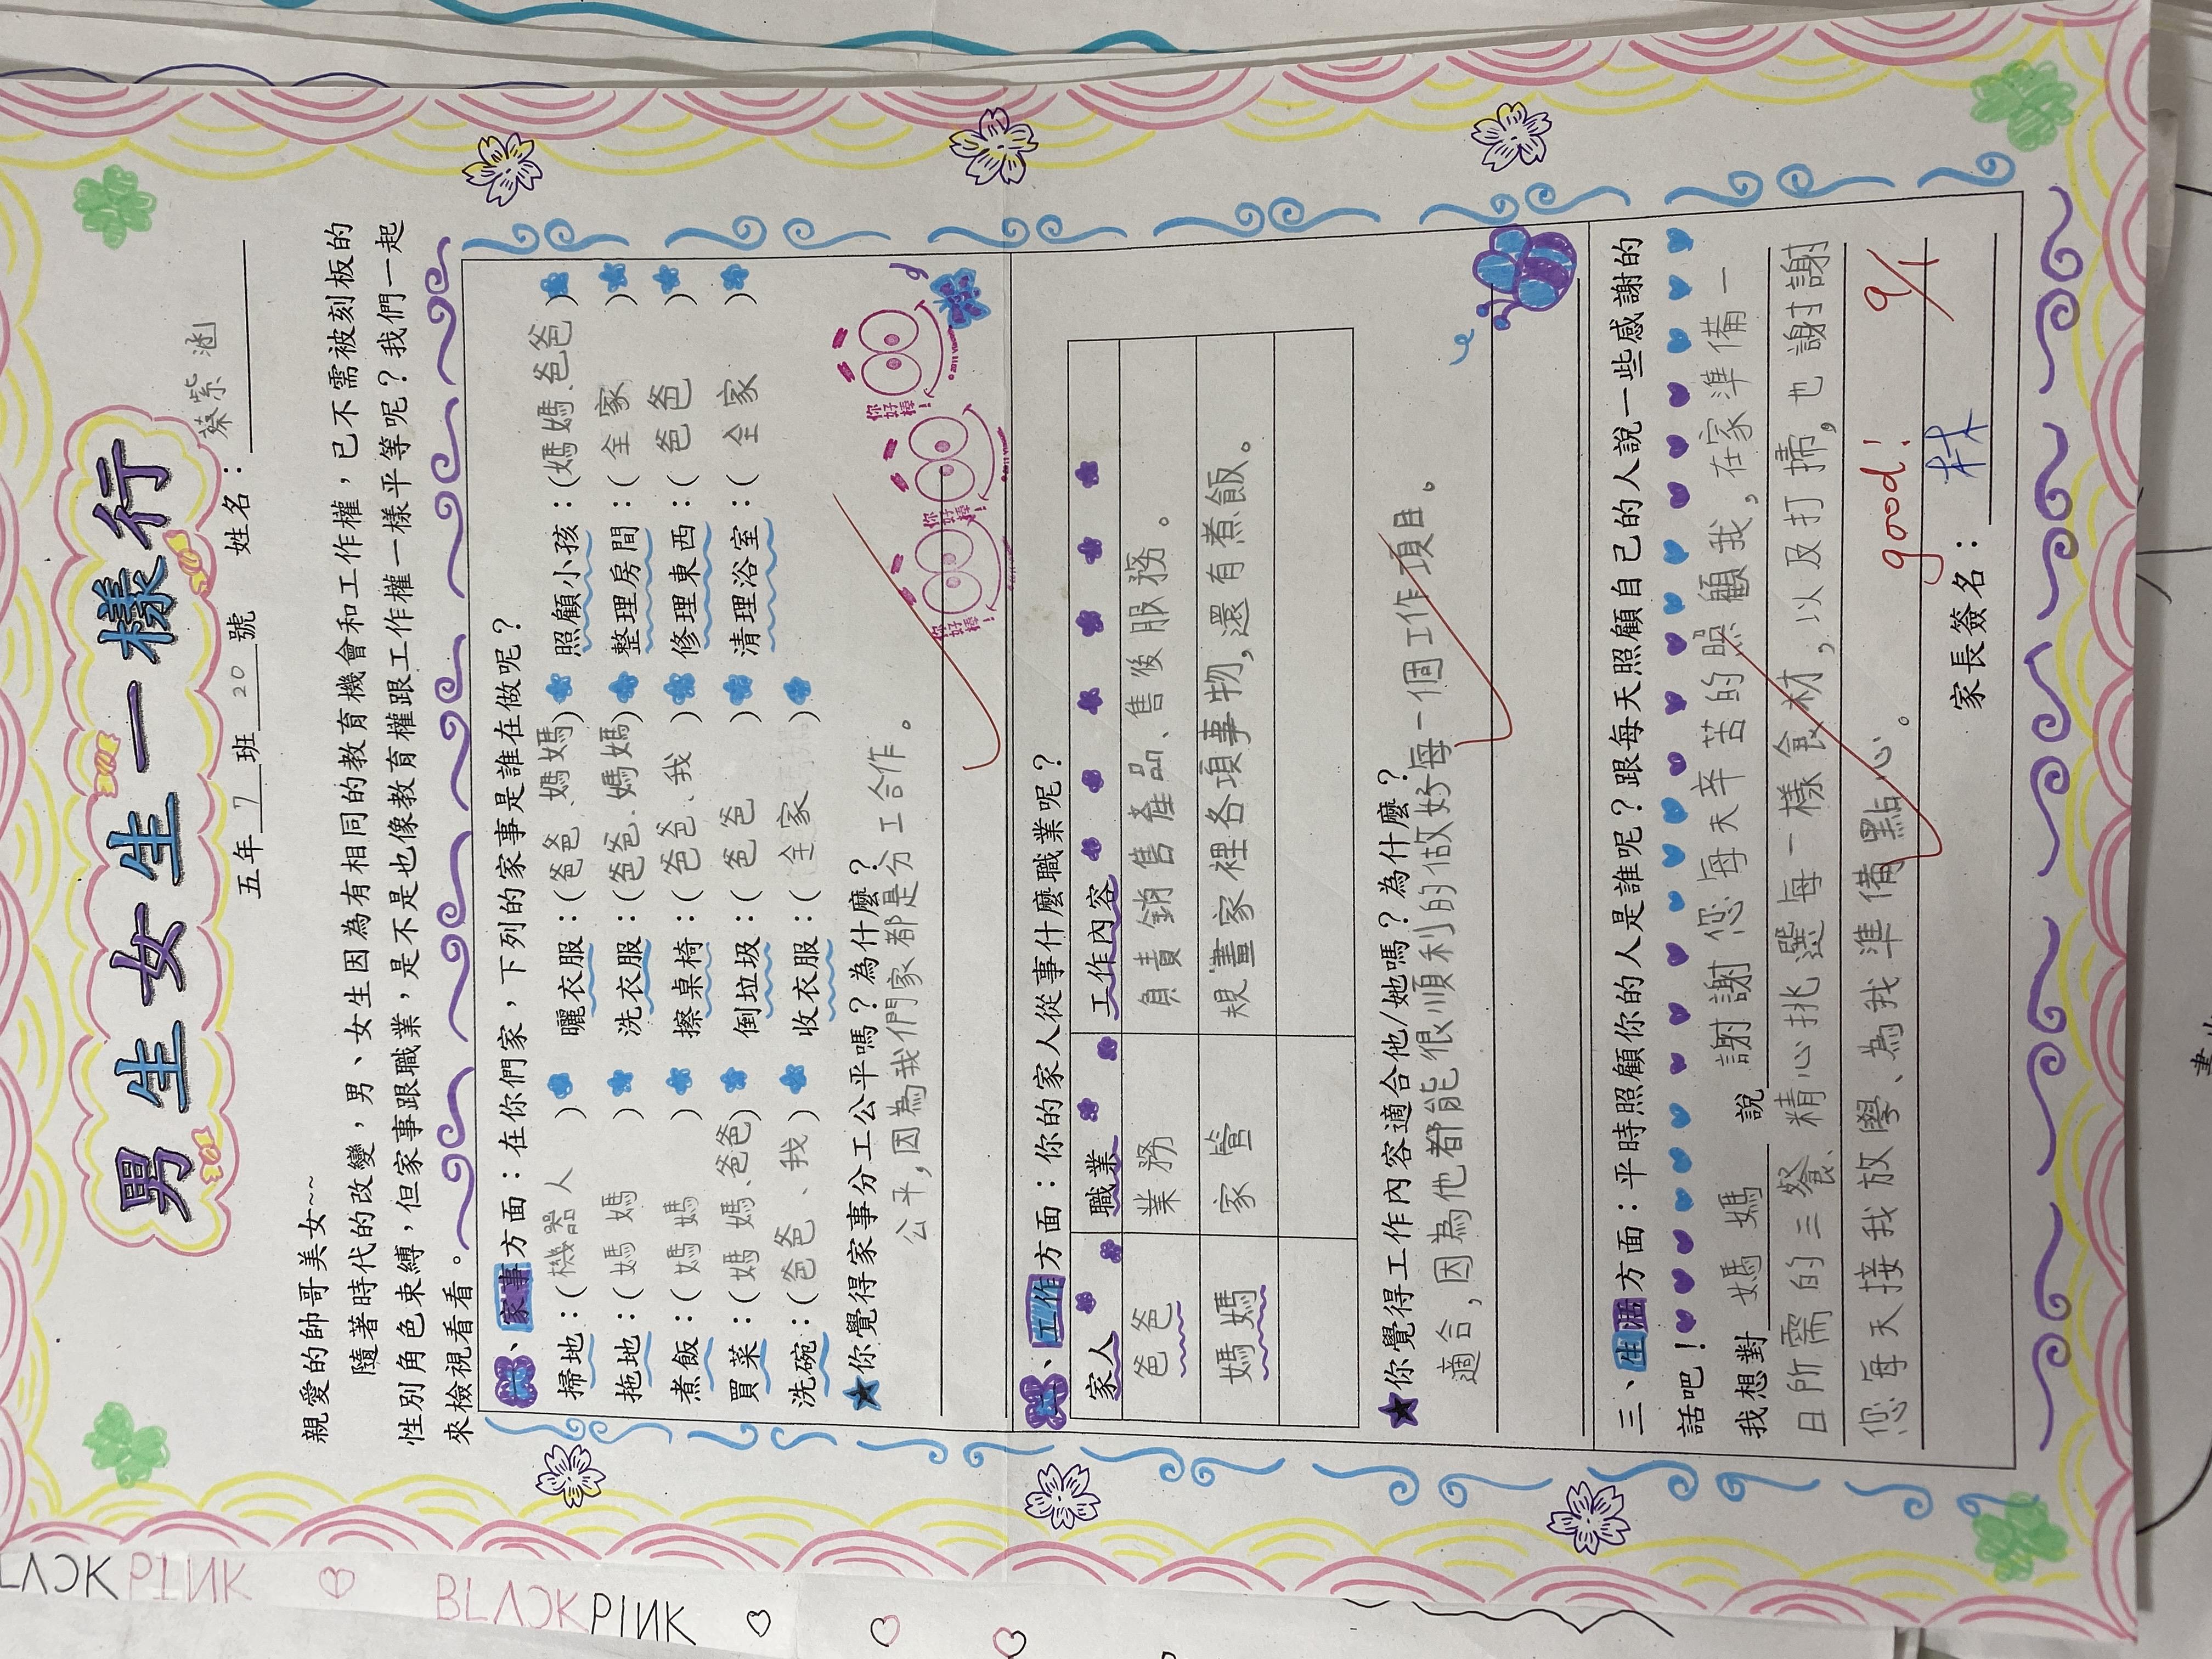 男生女生一樣行
五年 7 班 20 號 姓名：蔡紫涵
親愛的帥哥美女~~
隨著時代的改變，男、女生因為有相同的教育機會和工作權，已不需被刻板的
性別角色束縛，但家事跟職業，是不是也像教育權跟工作權一樣平等呢？我們一起
來檢視看看。
家事方面：在你們家，下列的家事是誰在做呢？
掃地：(機器人) 曬衣服：(爸爸、媽媽) 照顧小孩：(媽媽、爸爸)
拖地：(媽媽) 洗衣服：(爸爸、媽媽) 整理房間：(全家)
煮飯：(媽媽) 擦桌椅：(爸爸、我) 修理東西：(爸爸)
買菜：(媽媽、爸爸) 倒垃圾：(爸爸) 清理浴室：(全家)
洗碗：(爸爸、我) 收衣服：(全家)
★你覺得家事分工公平嗎？為什麼？
公平，因為我們家都是分工合作。
你好棒！
你好棒！
你好棒！
工作方面：你的家人從事什麼職業呢？
家人 職業 工作內容
爸爸 業務 負責銷售產品、售後服務。
媽媽 家管 規畫家裡各項事物，還有煮飯。
★你覺得工作內容適合他/她嗎？為什麼？
適合，因為他都能很順利的做好每一個工作項目。
三、生活方面：平時照顧你的人是誰呢？跟每天照顧自己的人說一些感謝的
話吧！
我想對 媽媽 說 謝謝您每天辛苦的照顧我，在家準備一
日所需的三餐、精心挑選每一樣食材，以及打掃，也謝謝
您每天接我放學、為我準備點心。
good! 9/1
家長簽名：林
BLACKPINK
BLACKPINK